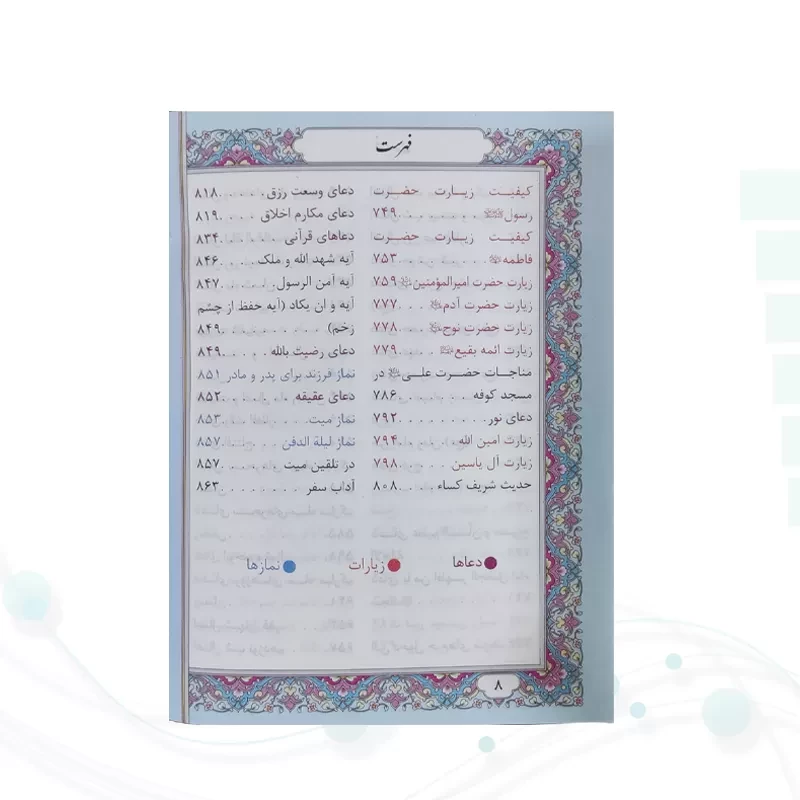 فهرست
کیفیت زیارت حضرت
رسول ﷺ . . . . . ۷۴۹
کیفیت زیارت حضرت
فاطمه . . . . . ۷۵۳
زیارت حضرت امیرالمؤمنین ۷۵۹
زیارت حضرت آدم . . . ۷۷۷
زیارت حضرت نوح . . . ۷۷۸
زیارت ائمه بقیع . . . ۷۷۹
مناجات حضرت علی در
مسجد کوفه . . . . . ۷۸۶
دعای نور . . . . . . . ۷۹۲
زیارت امین الله . . . . ۷۹۴
زیارت آل یاسین . . . . ۷۹۸
حدیث شریف کساء . . . . ۸۰۸
دعای وسعت رزق . . . . . ۸۱۸
دعای مکارم اخلاق . . . . ۸۱۹
دعاهای قرآنی . . . . . ۸۳۴
آیه شهد الله و ملک . . . . ۸۴۶
آیه آمن الرسول . . . . . ۸۴۷
آیه و ان یکاد (آیه حفظ از چشم
زخم) . . . . . . . . ۸۴۹
دعای رضیت بالله . . . . ۸۴۹
نماز فرزند برای پدر و مادر ۸۵۱
دعای عقیقه . . . . . . ۸۵۲
نماز میت . . . . . . . ۸۵۳
نماز لیلة الدفن . . . . ۸۵۷
در تلقین میت . . . . . ۸۵۷
آداب سفر . . . . . . . ۸۶۳
دعاها زیارات نمازها
۸